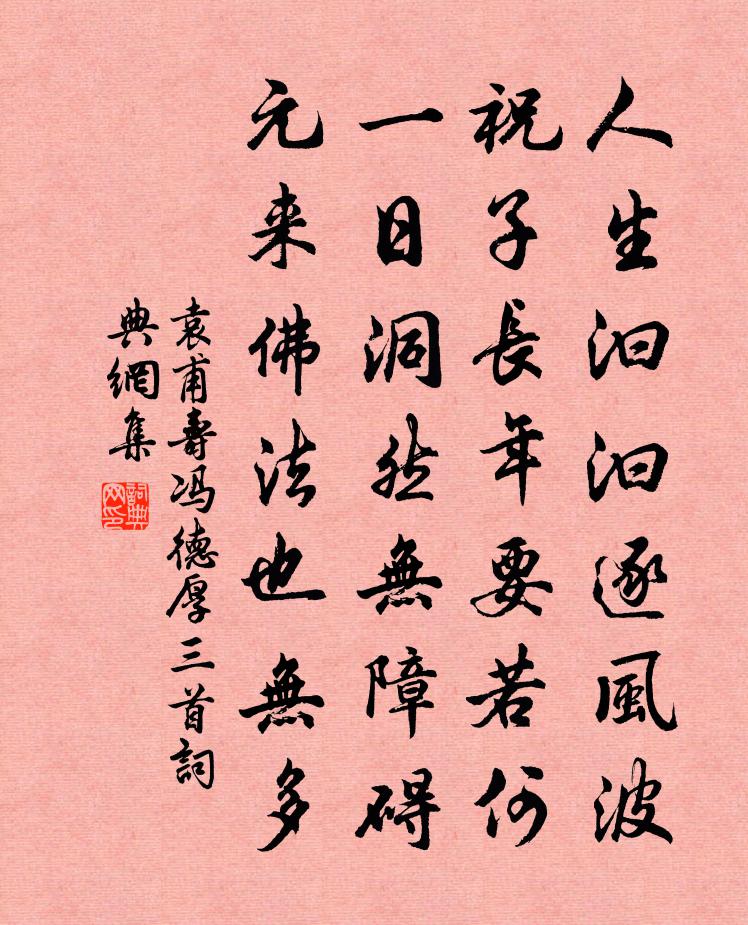 人生汩汩逐風波
祝子長年要若何
一日洞然無障碍
元来佛法也無多
袁甫壽冯德厚三首詞
典網集
詞典
网印